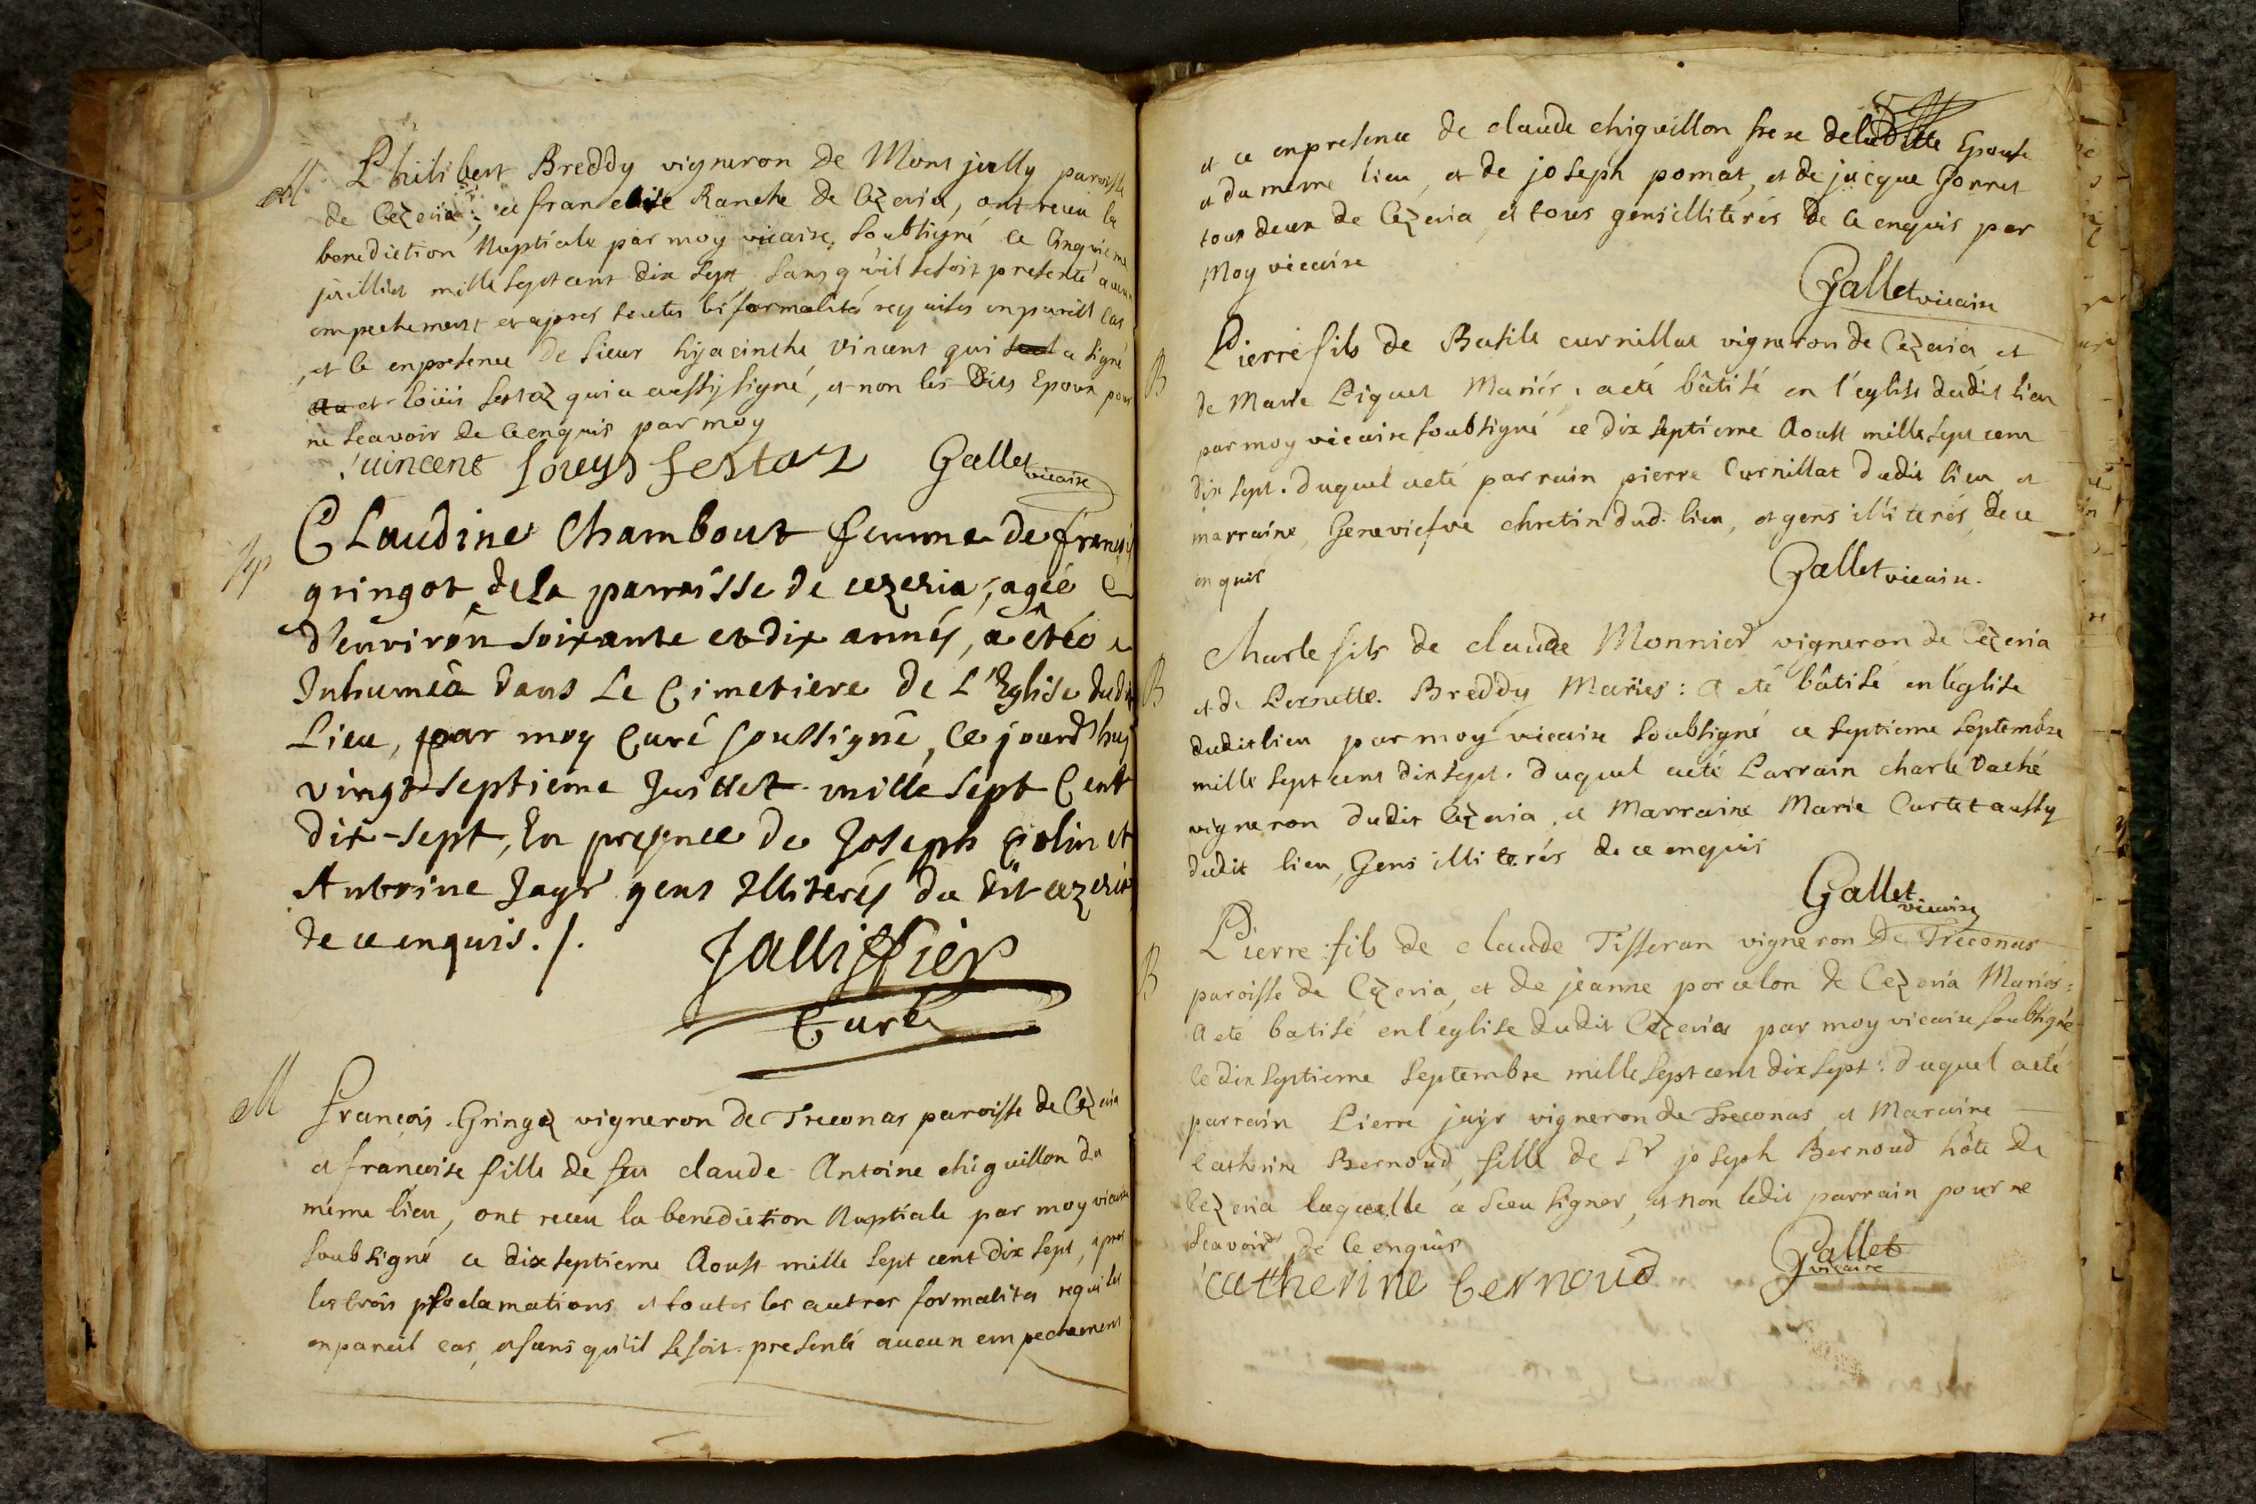 M
Philibert Breddy vigneron de Mont jully paroisse
de Cezeria, et francoise Ranche de Cezeria, ont receu la
benediction Nuptiale par moy vicaire soubsigné ce Cinquieme
juillet mille sept cent dix sept sans qu'il se soit presenté aucun
empechement et apres toutes les formalités requises en pareil cas
et ce en presence de sieur hyacinthe Vincent qui seul a signé
et loüis festaz qui a aussy signé, et non les dits Epoux pour
ne scavoir de ce enquis par moy
vincent Louys festaz Gallet vicaire
CLaudine Chambout femme de françois
gringot de la parroisse de cezeria, agée
d'environ soixante et dix années, a etéé
Inhuméé dans Le Cimetiere de L'Eglise dudit
Lieu, par moy Curé soussigné, Ce jourd'huy
vingt-septieme Juillet mille sept Cent
dix-sept, En presence de Joseph Colin et
Antoine Jayr gens Illiterés du dit cezeria
de ce enquis./.
Jalliffier
Curé
M
François Gringoz vigneron de Treconas paroisse de Cezeria
et francoise fille de feu claude Antoine chiguillon du
meme lieu, ont receu la benediction Nuptiale par moy vicaire
soubsigné ce dix septieme Aoust mille sept cent dix sept, apres
les trois proclamations et toutes les autres formalites requises
en pareil cas, et sans qu'il se soit presenté aucun empechement
et ce en presence de claude chiguillon frere de ladite Epouse
et du meme lieu, et de joseph pomat, et de jacque Gonnet
tous deux de Cezeria et tous gens illiterés de ce enquis par
Moy vicaire
Gallet vicaire
B
Pierre fils de Basile curnillat vigneron de Cezeria et
de Marie Piquet Mariés: a eté bâtisé en l'eglise dudit lieu
par moy vicaire soubsigné ce dix septieme Aoust mille sept cent
dix sept. duquel a eté parrain pierre Curnillat dudit lieu et
marraine, Geneviefve chretin dud. lieu, et gens illiterés, de ce
enquis
Gallet vicaire.
B
Charle fils de claude Monnier vigneron de Cezeria
et de Pernette Breddy Mariés: a eté bâtisé en l'eglise
dudit lieu par moy vicaire soubsigné ce septieme septembre
mille sept cent dix sept. duquel a eté Parrain charle Vaché
vigneron dudit Cezeria, et Marraine Marie Curtet aussy
dudit lieu, Gens illiterés de ce enquis
Gallet vicaire
B
Pierre fils de claude Tisseran vigneron de Treconas
paroisse de Cezeria, et de jeanne porcelon de Cezeria Mariés:
a eté batisé en l'eglise dudit Cezeria par moy vicaire soubsigné
le dix septieme septembre mille sept cent dix sept: duquel a eté
parrain Pierre jayr vigneron de Treconas et Maraine
Catherine Bernoud, fille de Sr joseph Bernoud hôte de
Cezeria laquelle a sceu signer, et non ledit parrain pour ne
scavoir de ce enquis
Catherine bernoud
Gallet vicaire